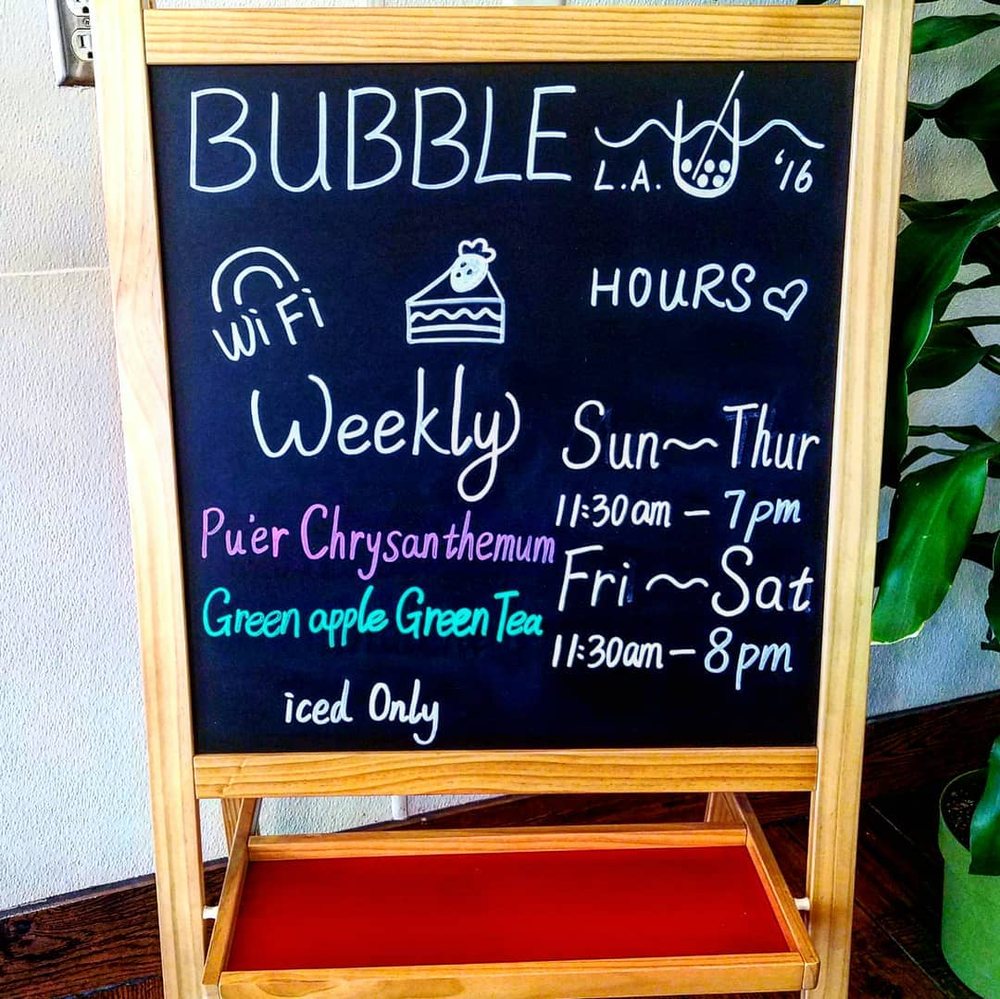 BUBBLE
L.A. '16
WiFi
HOURS
Weekly
Pu'er Chrysanthemum
Green apple Green Tea
iced Only
Sun~Thur
11:30am - 7pm
Fri~Sat
11:30am - 8pm